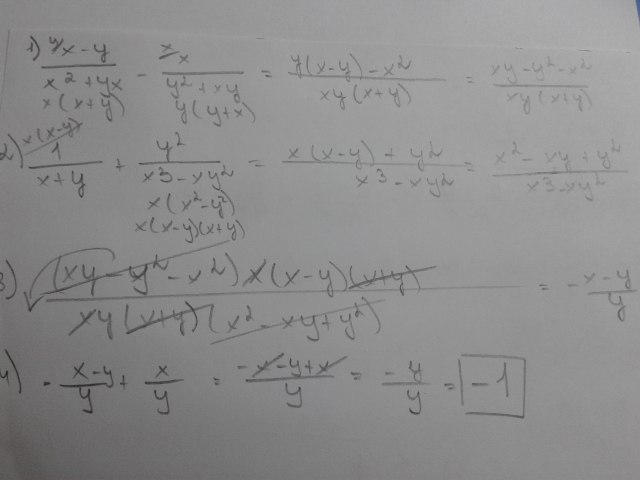 1) y/ x-y / x²+yx - x/ x / y²+xy = y(x-y)-x² / xy(x+y) = xy-y²-x² / xy(x+y)
x(x+y) y(y+x)
2) x(x-y)/ 1 / x+y + y² / x³-xy² = x(x-y)+y² / x³-xy² = x²-xy+y² / x³-xy²
x(x²-y²)
x(x-y)(x+y)
3) (xy-y²-x²)x(x-y)(x+y) / xy(x+y)(x²-xy+y²) = -x-y / y
4) - x-y / y + x / y = -x-y+x / y = -y / y = -1